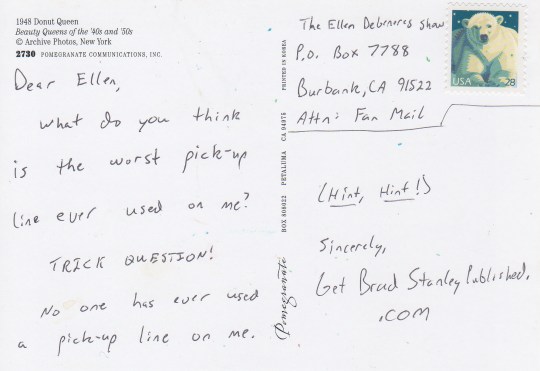 1948 Donut Queen
Beauty Queens of the '40s and '50s
© Archive Photos, New York
2730 POMEGRANATE COMMUNICATIONS, INC.
Dear Ellen,
What do you think
is the worst pick-up
line ever used on me?
TRICK QUESTION!
No one has ever used
a pick-up line on me.
PRINTED IN KOREA
CA 94975
PETALUMA
BOX 808022
Pomegranate
The Ellen Degeneres Show
P.O. Box 7788
Burbank, CA 91522
Attn: Fan Mail
USA 28
(Hint, Hint!)
Sincerely,
Get Brad Stanley Published.
.COM